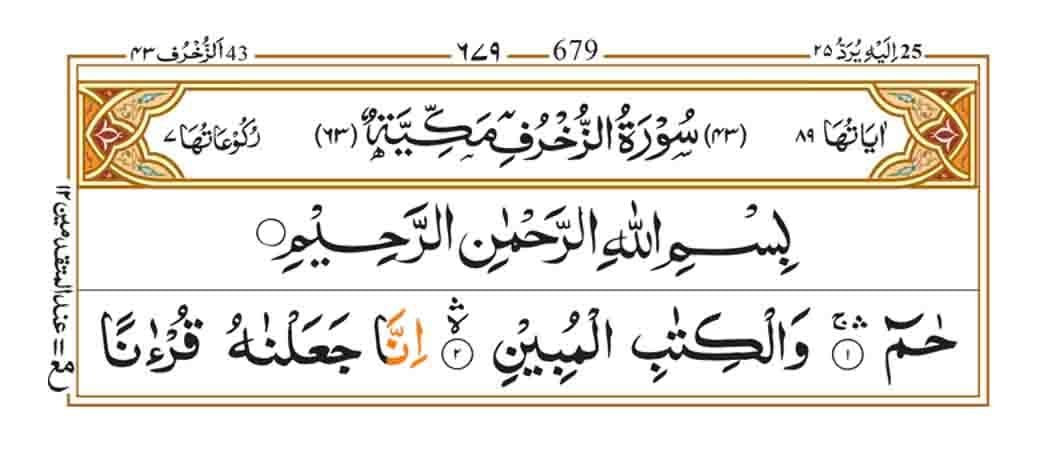 اِلَيْهِ يُرَدُّ ٢٥ 25 679 ٦٧٩ 43 اَلزُّخْرُف ٤٣
اٰيَاتُهَا ٨٩ (٤٣) سُوْرَةُ الزُّخْرُفِ مَكِّيَّةٌ (٦٣) رُكُوْعَاتُهَا ٧
بِسْمِ اللّٰهِ الرَّحْمٰنِ الرَّحِيْمِ
حٰمٓ ۛۚ ١ وَالْكِتٰبِ الْمُبِيْنِ ۛۙ ٢ اِنَّا جَعَلْنٰهُ قُرْءٰنًا
مع = عند المتقدمين ١٢